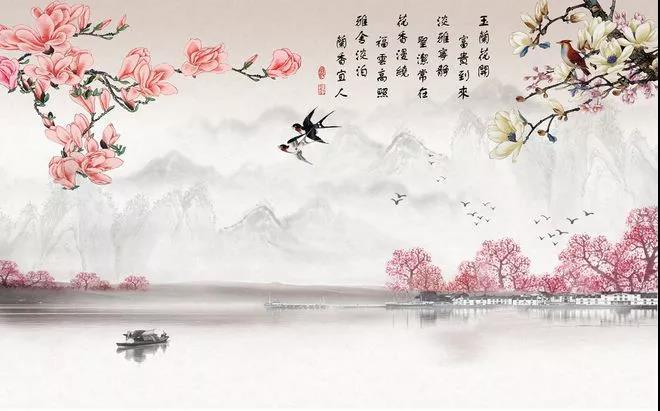 玉蘭花開
富貴到來
淡雅寧靜
聖潔常在
花香漫繞
福雲高照
雅舍淡泊
蘭香宜人